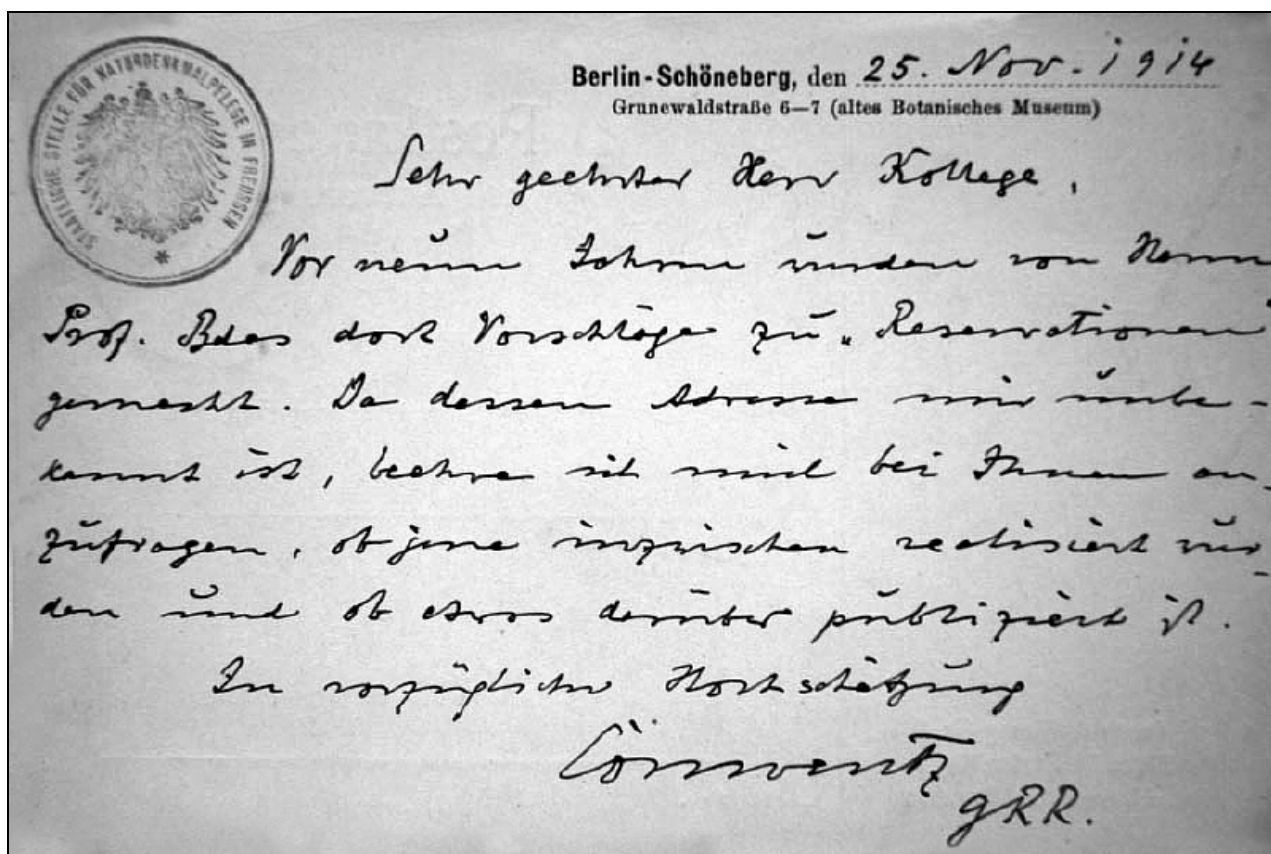 STAATLICHE STELLE FÜR NATURDENKMALPFLEGE IN PREUSSEN
Berlin-Schöneberg, den 25. Nov. 1914
Grunewaldstraße 6—7 (altes Botanisches Museum)
Sehr geehrter Herr Kollege,
Vor neun Jahren wurden von Herrn
Prof. dort Vorschläge zu „Reservationen"
gemacht. Da dessen Adresse mir unbe-
kannt ist, beehre ich mich bei Ihnen an-
zufragen, ob jene inzwischen realisiert wur-
den und ob etwas darüber publiziert ist.
In vorzüglicher Hochschätzung
Conwentz
GRR.